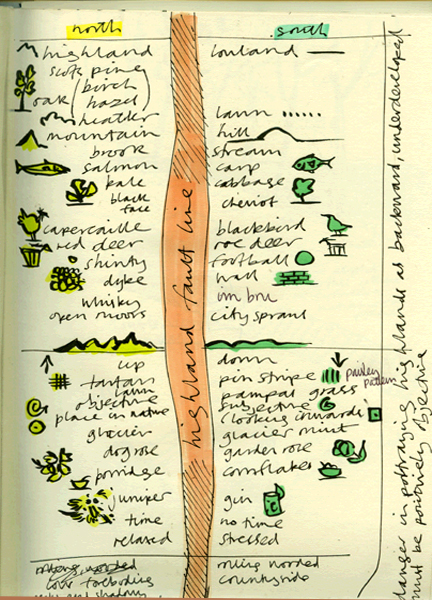 north
highland
scots pine
birch
oak
hazel
heather
mountain
brook
salmon
kale
black
face
capercaille
red deer
shinty
dyke
whisky
open moors
up
tartan
lawn
objective
place in nature
glacier
dog rose
porridge
juniper
time
relaxed
highland fault line
south
lowland
lawn
hill
stream
carp
cabbage
cheviot
blackbird
roe deer
football
wall
irn bru
city sprawl
down
pin stripe
paisley
pattern
pampas grass
subjective
'looking inwards'
glacier mint
garden rose
cornflakes
gin
no time
stressed
rolling wooded
countryside
danger in portraying highlands as backward, underdeveloped
must be positively objective